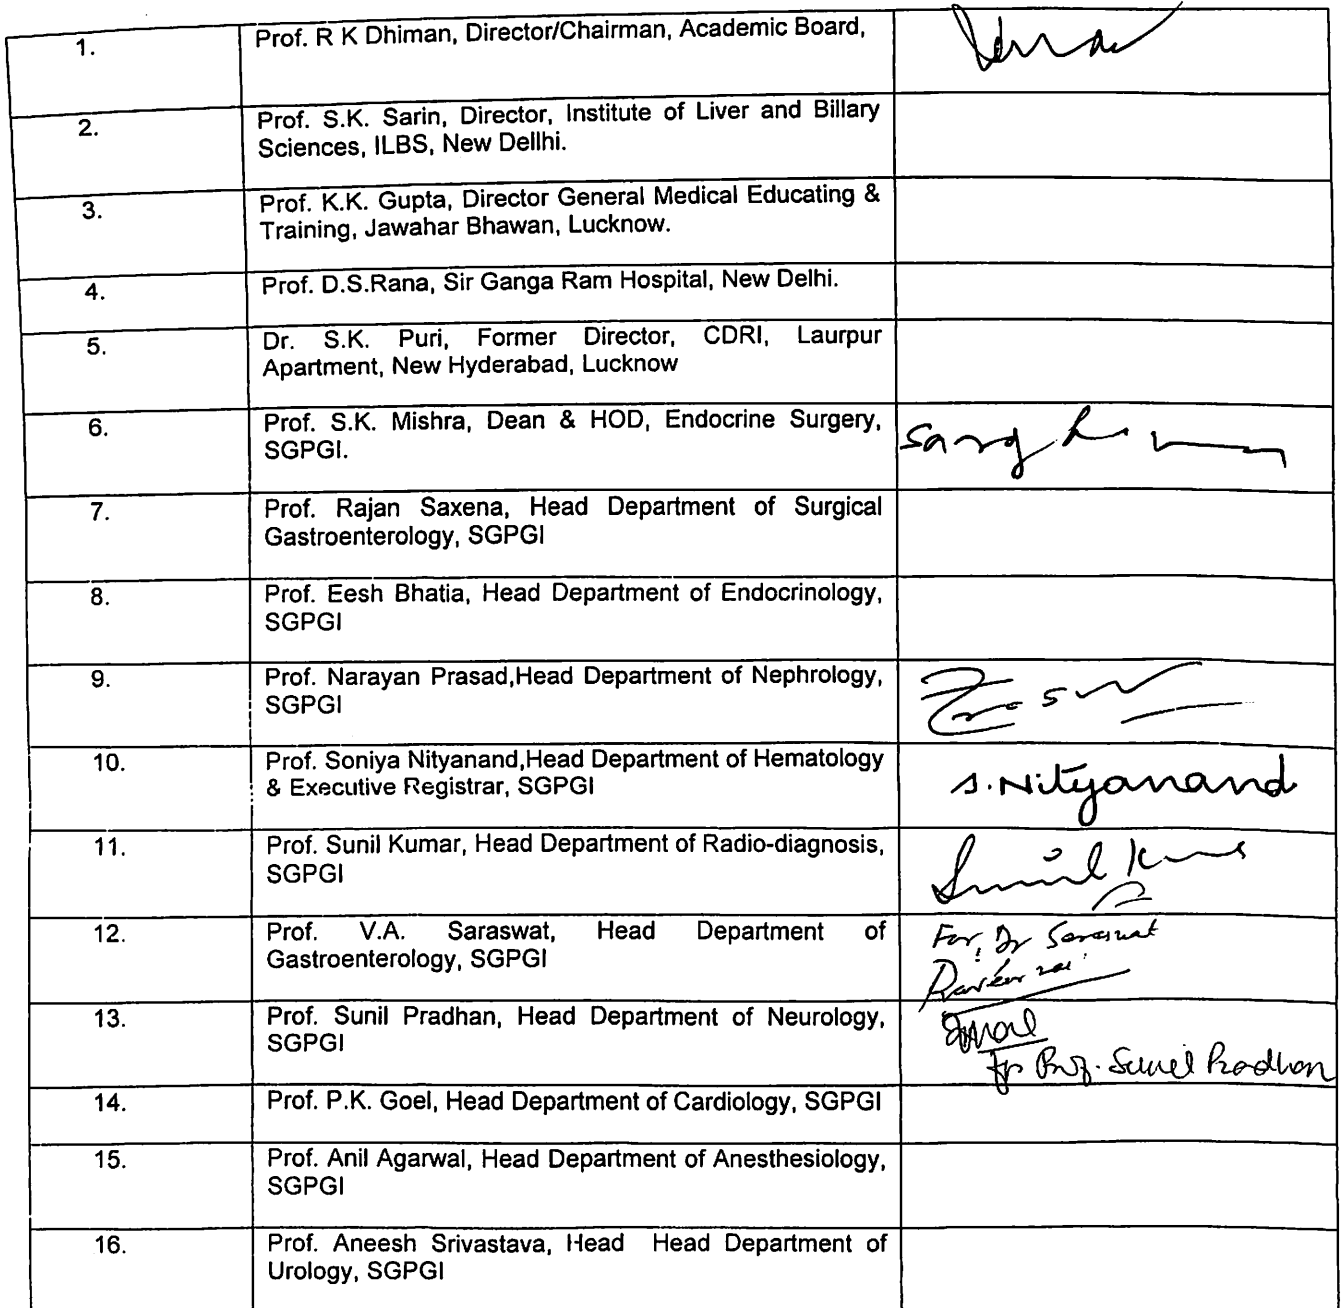 1.
Prof. R K Dhiman, Director/Chairman, Academic Board,
2.
Prof. S.K. Sarin, Director, Institute of Liver and Billary
Sciences, ILBS, New Dellhi.
3.
Prof. K.K. Gupta, Director General Medical Educating &
Training, Jawahar Bhawan, Lucknow.
4.
Prof. D.S.Rana, Sir Ganga Ram Hospital, New Delhi.
5.
Dr. S.K. Puri, Former Director, CDRI, Laurpur
Apartment, New Hyderabad, Lucknow
6.
Prof. S.K. Mishra, Dean & HOD, Endocrine Surgery,
SGPGI.
7.
Prof. Rajan Saxena, Head Department of Surgical
Gastroenterology, SGPGI
8.
Prof. Eesh Bhatia, Head Department of Endocrinology,
SGPGI
9.
Prof. Narayan Prasad,Head Department of Nephrology,
SGPGI
10.
Prof. Soniya Nityanand,Head Department of Hematology
& Executive Registrar, SGPGI
S. Nityanand
11.
Prof. Sunil Kumar, Head Department of Radio-diagnosis,
SGPGI
Sunil Kumar
12.
Prof. V.A. Saraswat, Head Department of
Gastroenterology, SGPGI
For, Dr Saraswat
13.
Prof. Sunil Pradhan, Head Department of Neurology,
SGPGI
for Prof. Sunil Pradhan
14.
Prof. P.K. Goel, Head Department of Cardiology, SGPGI
15.
Prof. Anil Agarwal, Head Department of Anesthesiology,
SGPGI
16.
Prof. Aneesh Srivastava, Head Head Department of
Urology, SGPGI